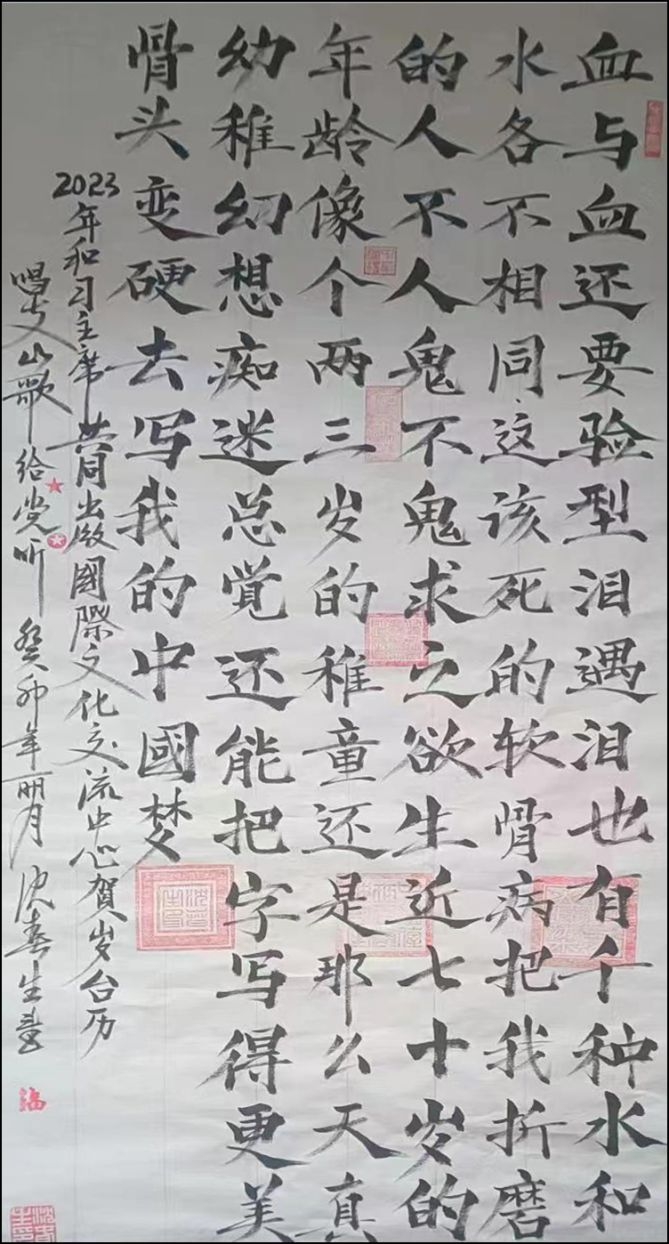 血与血还要验型泪遇泪也有千种水和
水各不相同、这该死的软骨病把我折磨
的人不人鬼不鬼求之欲生近七十岁的
年龄像个两三岁的稚童还是那么天真
幼稚幻想痴迷总觉还能把字写得更美
骨头变硬去写我的中國梦
2023年和习主席共同出版國際文化交流中心贺岁台历
唱支山歌给党听 癸卯年 月 沈春生书